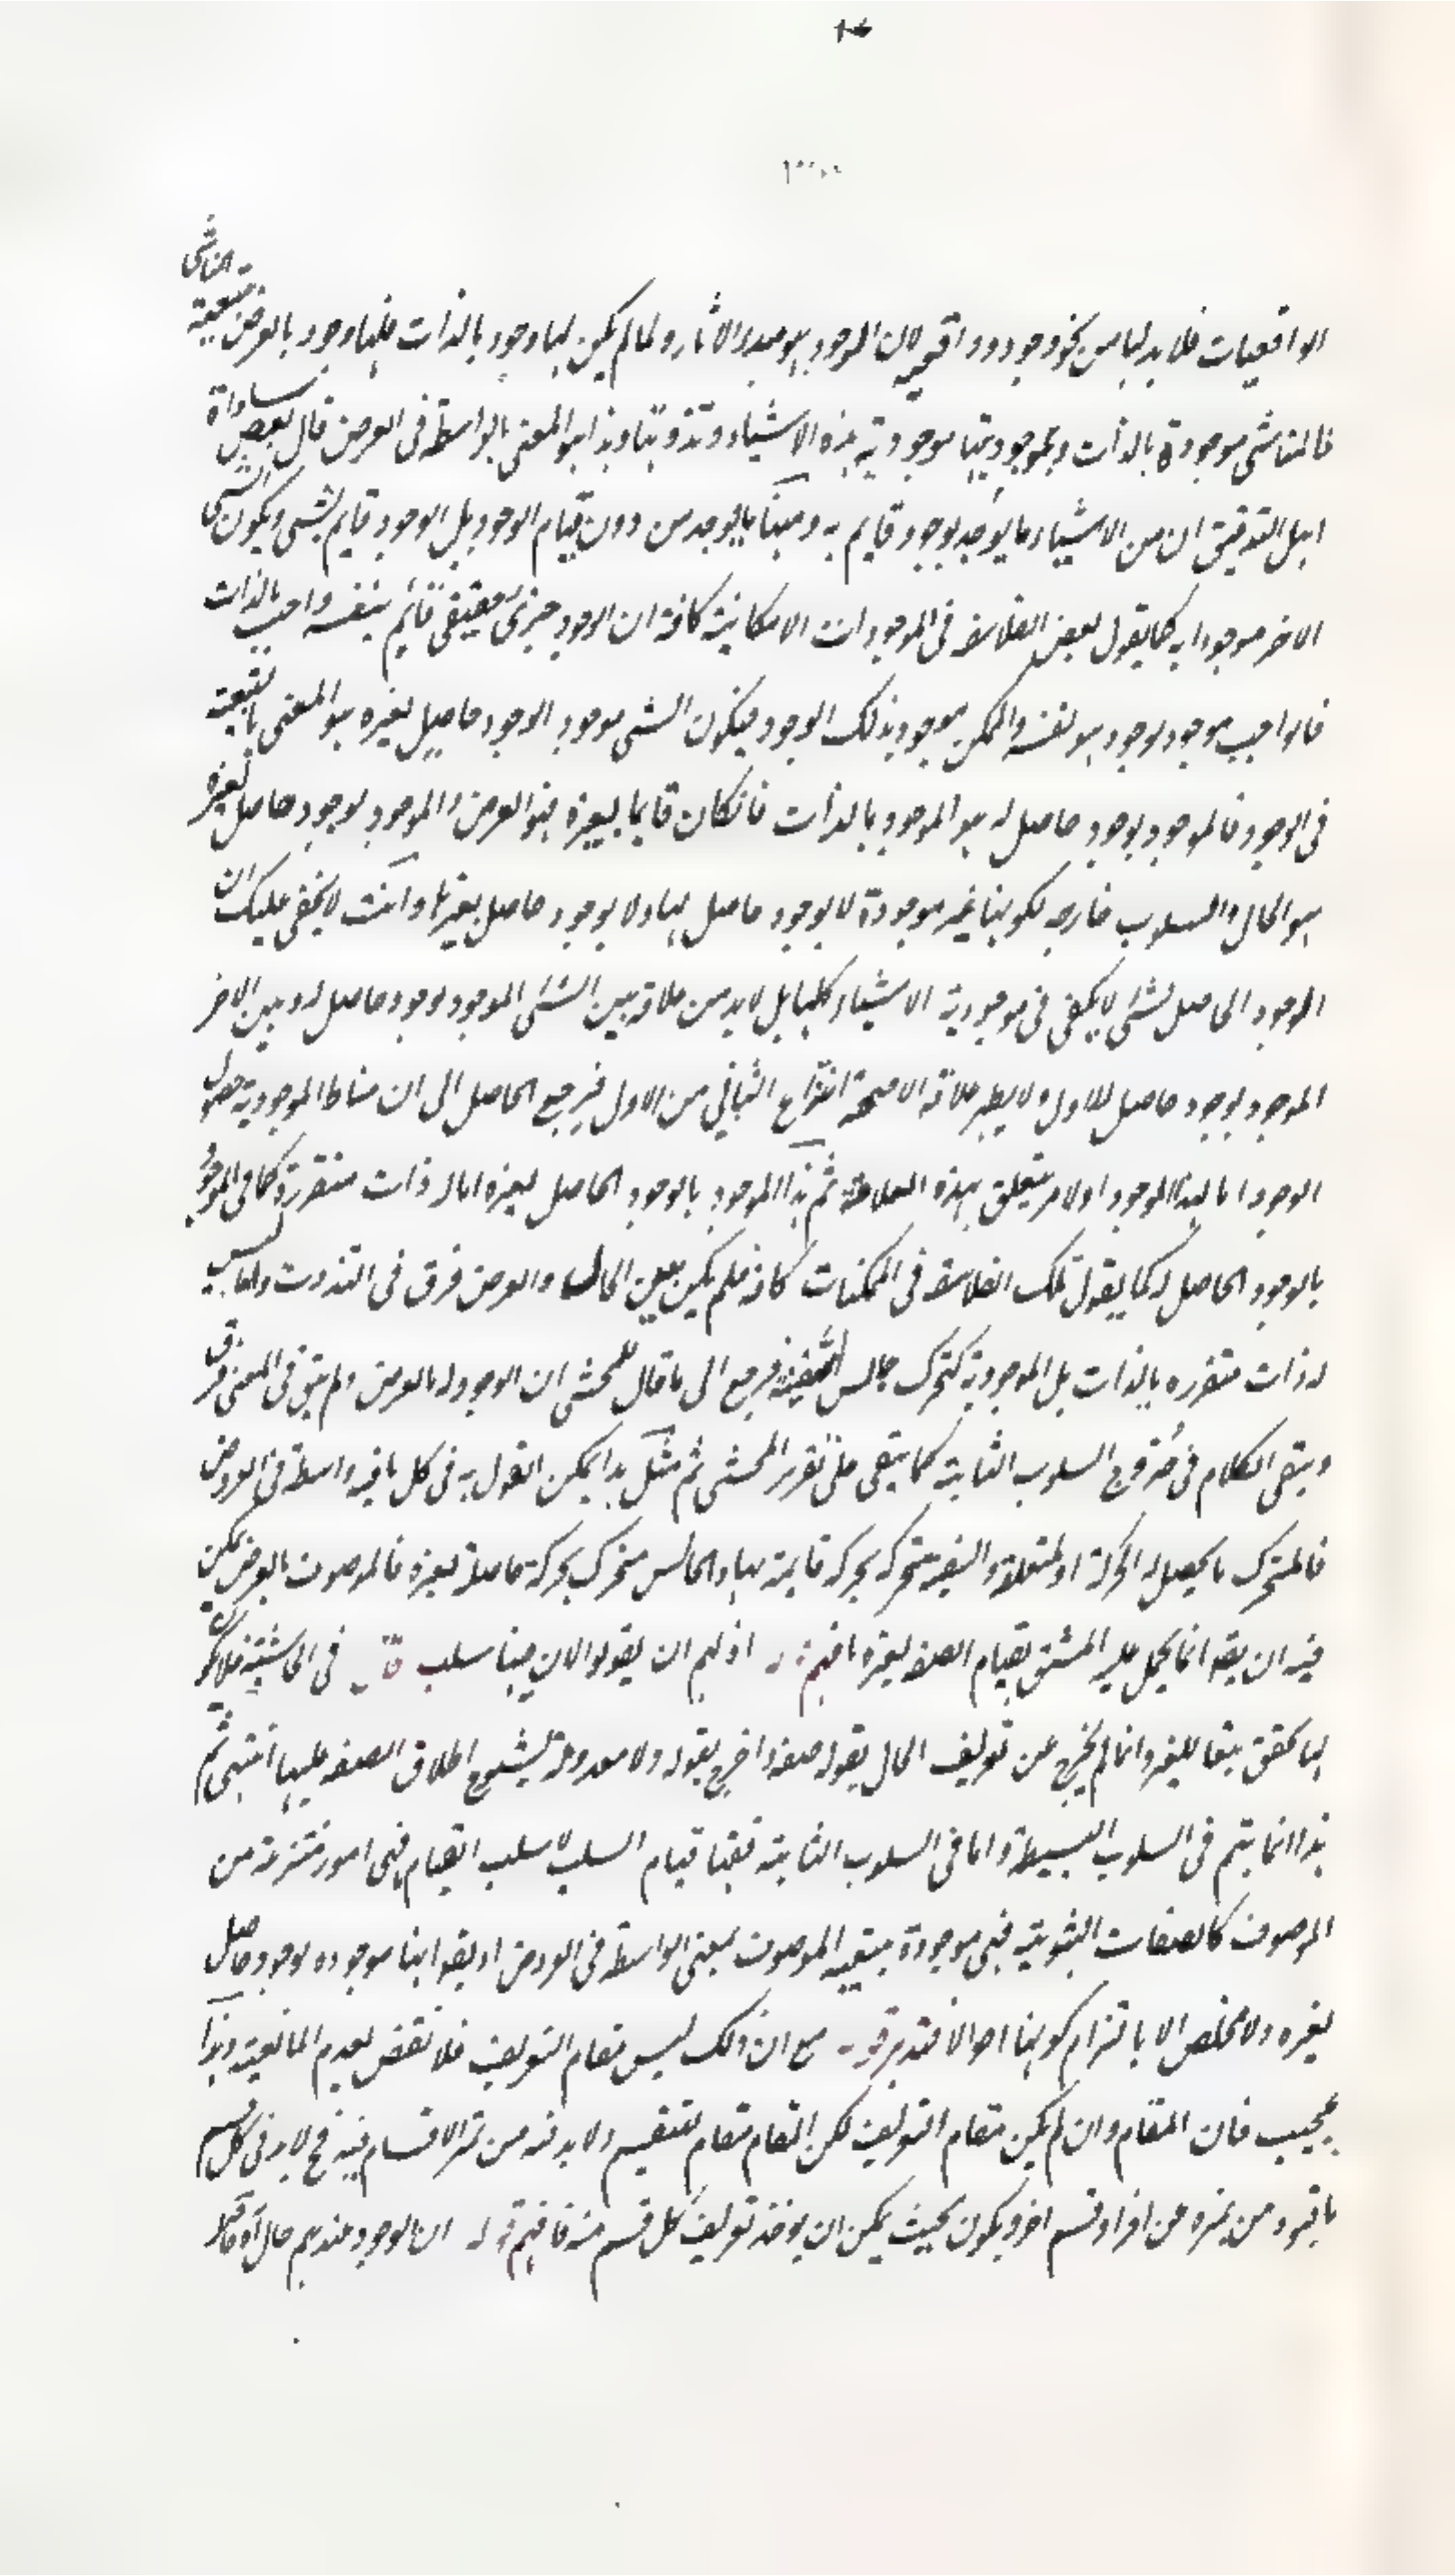 الواقعيات فلا بد لها من نحو وجود واقعي لان الموجود هو مبدء الاثار ولما لم يكن لها وجود بالذات فلها وجود بالعرض بتبعية المناشي
فالمناشي موجودة بالذات وبموجوديتها موجودية هذه الاشياء وتذوتها وهذا هو المعنى بالواسطة في العروض قال بعض سادة
اهل التدقيق ان من الاشياء ما يوجد بوجود قايم به ومنها ما يوجد من دون قيام الوجود بل الوجود قايم بشي ويكون الشي
الاخر موجودا به كما يقول بعض الفلاسفة في الموجودات الامكانية كافة ان الوجود جزئي حقيقي قائم بنفسه واجب بالذات
فالواجب موجود بوجود هو نفسه والممكن موجود بذلك الوجود فيكون الشي موجود الوجود حاصل لغيره هو المعنى بالتبعية
في الوجود فالموجود بوجود حاصل له هو الموجود بالذات فان كان قايما بغيره فهو العرض والموجود بوجود حاصل لغيره
هو الحال والسلوب خارجه لكونها غير موجودة لا بوجود حاصل لها ولا بوجود حاصل لغيرها وانت لا يخفى عليك ان
الوجود الحاصل لشئ لا يكفي في موجودية الاشياء كلها بل لا بد من علاقة بين الشئ الموجود بوجود حاصل له وبين الاخر
الموجود بوجود حاصل للاول ولا يظهر علاقة الا صحة انتزاع الثاني من الاول فيرجع الحاصل الى ان مناط الموجودية حصول
الوجود اما لهذا الموجود او لامر يتعلق بهذه العلاقة ثم هذا الموجود بالوجود الحاصل لغيره اما له ذات متقررة كما في الموجود
بالوجود الحاصل له كما يقول تلك الفلاسفة في الممكنات كافة فلم يكن بين الحال والعرض فرق في التذوت واما ليس
له ذات متقرره بالذات بل الموجودية كتحرك جالس السفينة فرجع الى ما قال المحشي ان الوجود له بالعرض ولم يبق في المعنى فرق
ويبقى الكلام في خروج السلوب الثابتة كما يبقى على تقرير المحشي ثم مثل هذا يمكن القول به في كل ما فيه واسطة في العروض
فالمتحرك ما يحصل له الحركة او لمتعلقه والسفينة متحركه بحركه قايمة بها والجالس متحرك بحركة حاصلة لغيره فالموصوف بالعرض لكن
فيه ان يقو انما يحمل عليه المشتق بقيام الصفة لغيره فافهم قوله اذ لهم ان يقولوا لان حينها سلب في الحاشية فلا يكون
لها تحقق تبعا للغير وانما لم يخرج عن تعريف الحال بقوله صفة واخرج بقوله ولا معدومة لشيوع اطلاق الصفه عليها انتهى ثم
هذا انما يتم في السلوب البسيطة واما في السلوب الثابتة فقيها قيام السلب لا سلب القيام فهي امور منتزعة من
الموصوف كالصفات الثبوتية فهي موجودة بتبعية الموصوف بمعنى الواسطة في العروض او يقو انها موجوده بوجود حاصل
لغيره ولا مخلص الا بالتزام كونها احوالا فتدبر قوله مع ان ذلك ليس مقام التعريف فلا نقض بعدم المانعية وهذا
عجيب فان المقام وان لم يكن مقام التعريف لكن المقام مقام التقسيم ولا بد فيه من تميز الاقسام فيه فح لا بد في كل قسم
ما قيود من تميزه عن افراد قسم اخر ويكون بحيث يمكن ان يوخذ تعريف كل قسم منه فافهم قوله ان الوجود عندهم حال اه قال